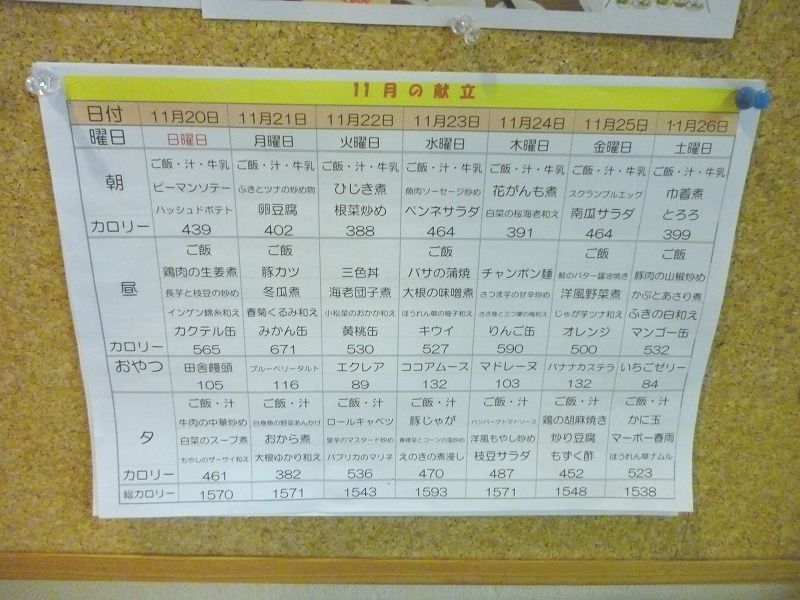 11月の献立
日付 11月20日 11月21日 11月22日 11月23日 11月24日 11月25日 11月26日
曜日 日曜日 月曜日 火曜日 水曜日 木曜日 金曜日 土曜日
ご飯・汁・牛乳 ご飯・汁・牛乳 ご飯・汁・牛乳 ご飯・汁・牛乳 ご飯・汁・牛乳 ご飯・汁・牛乳 ご飯・汁・牛乳
朝 ピーマンソテー ふきとツナの炒め物 ひじき煮 魚肉ソーセージ炒め 花がんも煮 スクランブルエッグ 巾着煮
ハッシュドポテト 卵豆腐 根菜炒め ペンネサラダ 白菜の桜海老和え 南瓜サラダ とろろ
カロリー 439 402 388 464 391 464 399
ご飯 ご飯 ご飯 ご飯 ご飯
鶏肉の生姜煮 豚カツ 三色丼 バサの蒲焼 チャンポン麺 鮭のバター醤油焼き 豚肉の山椒炒め
昼 長芋と枝豆の炒め 冬瓜煮 海老団子煮 大根の味噌煮 さつま芋の甘辛炒め 洋風野菜煮 かぶとあさり煮
インゲン錦糸和え 春菊くるみ和え 小松菜のおかか和え ほうれん草の柚子和え ささ身と三つ葉の梅和え じゃが芋ツナ和え ふきの白和え
カクテル缶 みかん缶 黄桃缶 キウイ りんご缶 オレンジ マンゴー缶
カロリー 565 671 530 527 590 500 532
おやつ 田舎饅頭 ブルーベリータルト エクレア ココアムース マドレーヌ バナナカステラ いちごゼリー
105 116 89 132 103 132 84
ご飯・汁 ご飯・汁 ご飯・汁 ご飯・汁 ご飯・汁 ご飯・汁 ご飯・汁
牛肉の中華炒め 白身魚の野菜あんかけ ロールキャベツ 豚じゃが ハンバーグトマトソース 鶏の胡麻焼き かに玉
夕 白菜のスープ煮 おから煮 里芋のマスタード炒め 洋風もやし炒め 炒り豆腐 マーボー春雨
もやしのザーサイ和え 大根ゆかり和え パプリカのマリネ えのきの煮浸し 枝豆サラダ もずく酢 ほうれん草ナムル
カロリー 461 382 536 470 487 452 523
総カロリー 1570 1571 1543 1593 1571 1548 1538